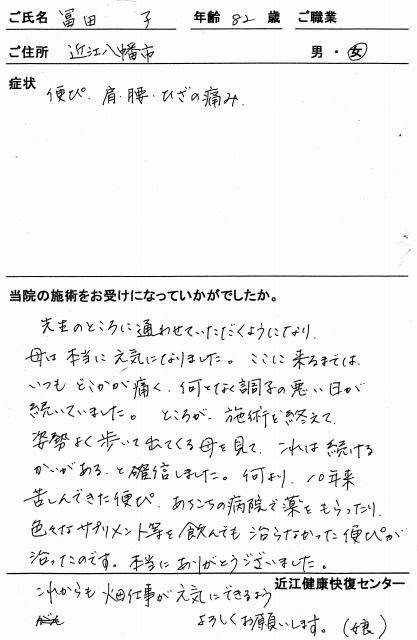 ご氏名 冨田 子 年齢 82 歳 ご職業
ご住所 近江八幡市 男・女
症状
便ぴ、肩・腰・ひざの痛み、
当院の施術をお受けになっていかがでしたか。
先生のところに通わせていただくようになり、
母は本当に元気になりました。ここに来るまでは、
いつもどこかが痛く、何となく調子の悪い日が
続いていました。ところが、施術を終えて、
姿勢よく歩いて出てくる母を見て、これは続ける
かいがある、と確信しました。何より、10年来
苦しんできた便ぴ、あちこちの病院で薬をもらったり、
色々なサプリメント等を飲んでも治らなかった便ぴが
治ったのです。本当にありがとうございました。
これからも畑仕事が元気にできるよう
近江健康快復センター
よろしくお願いします。(娘)